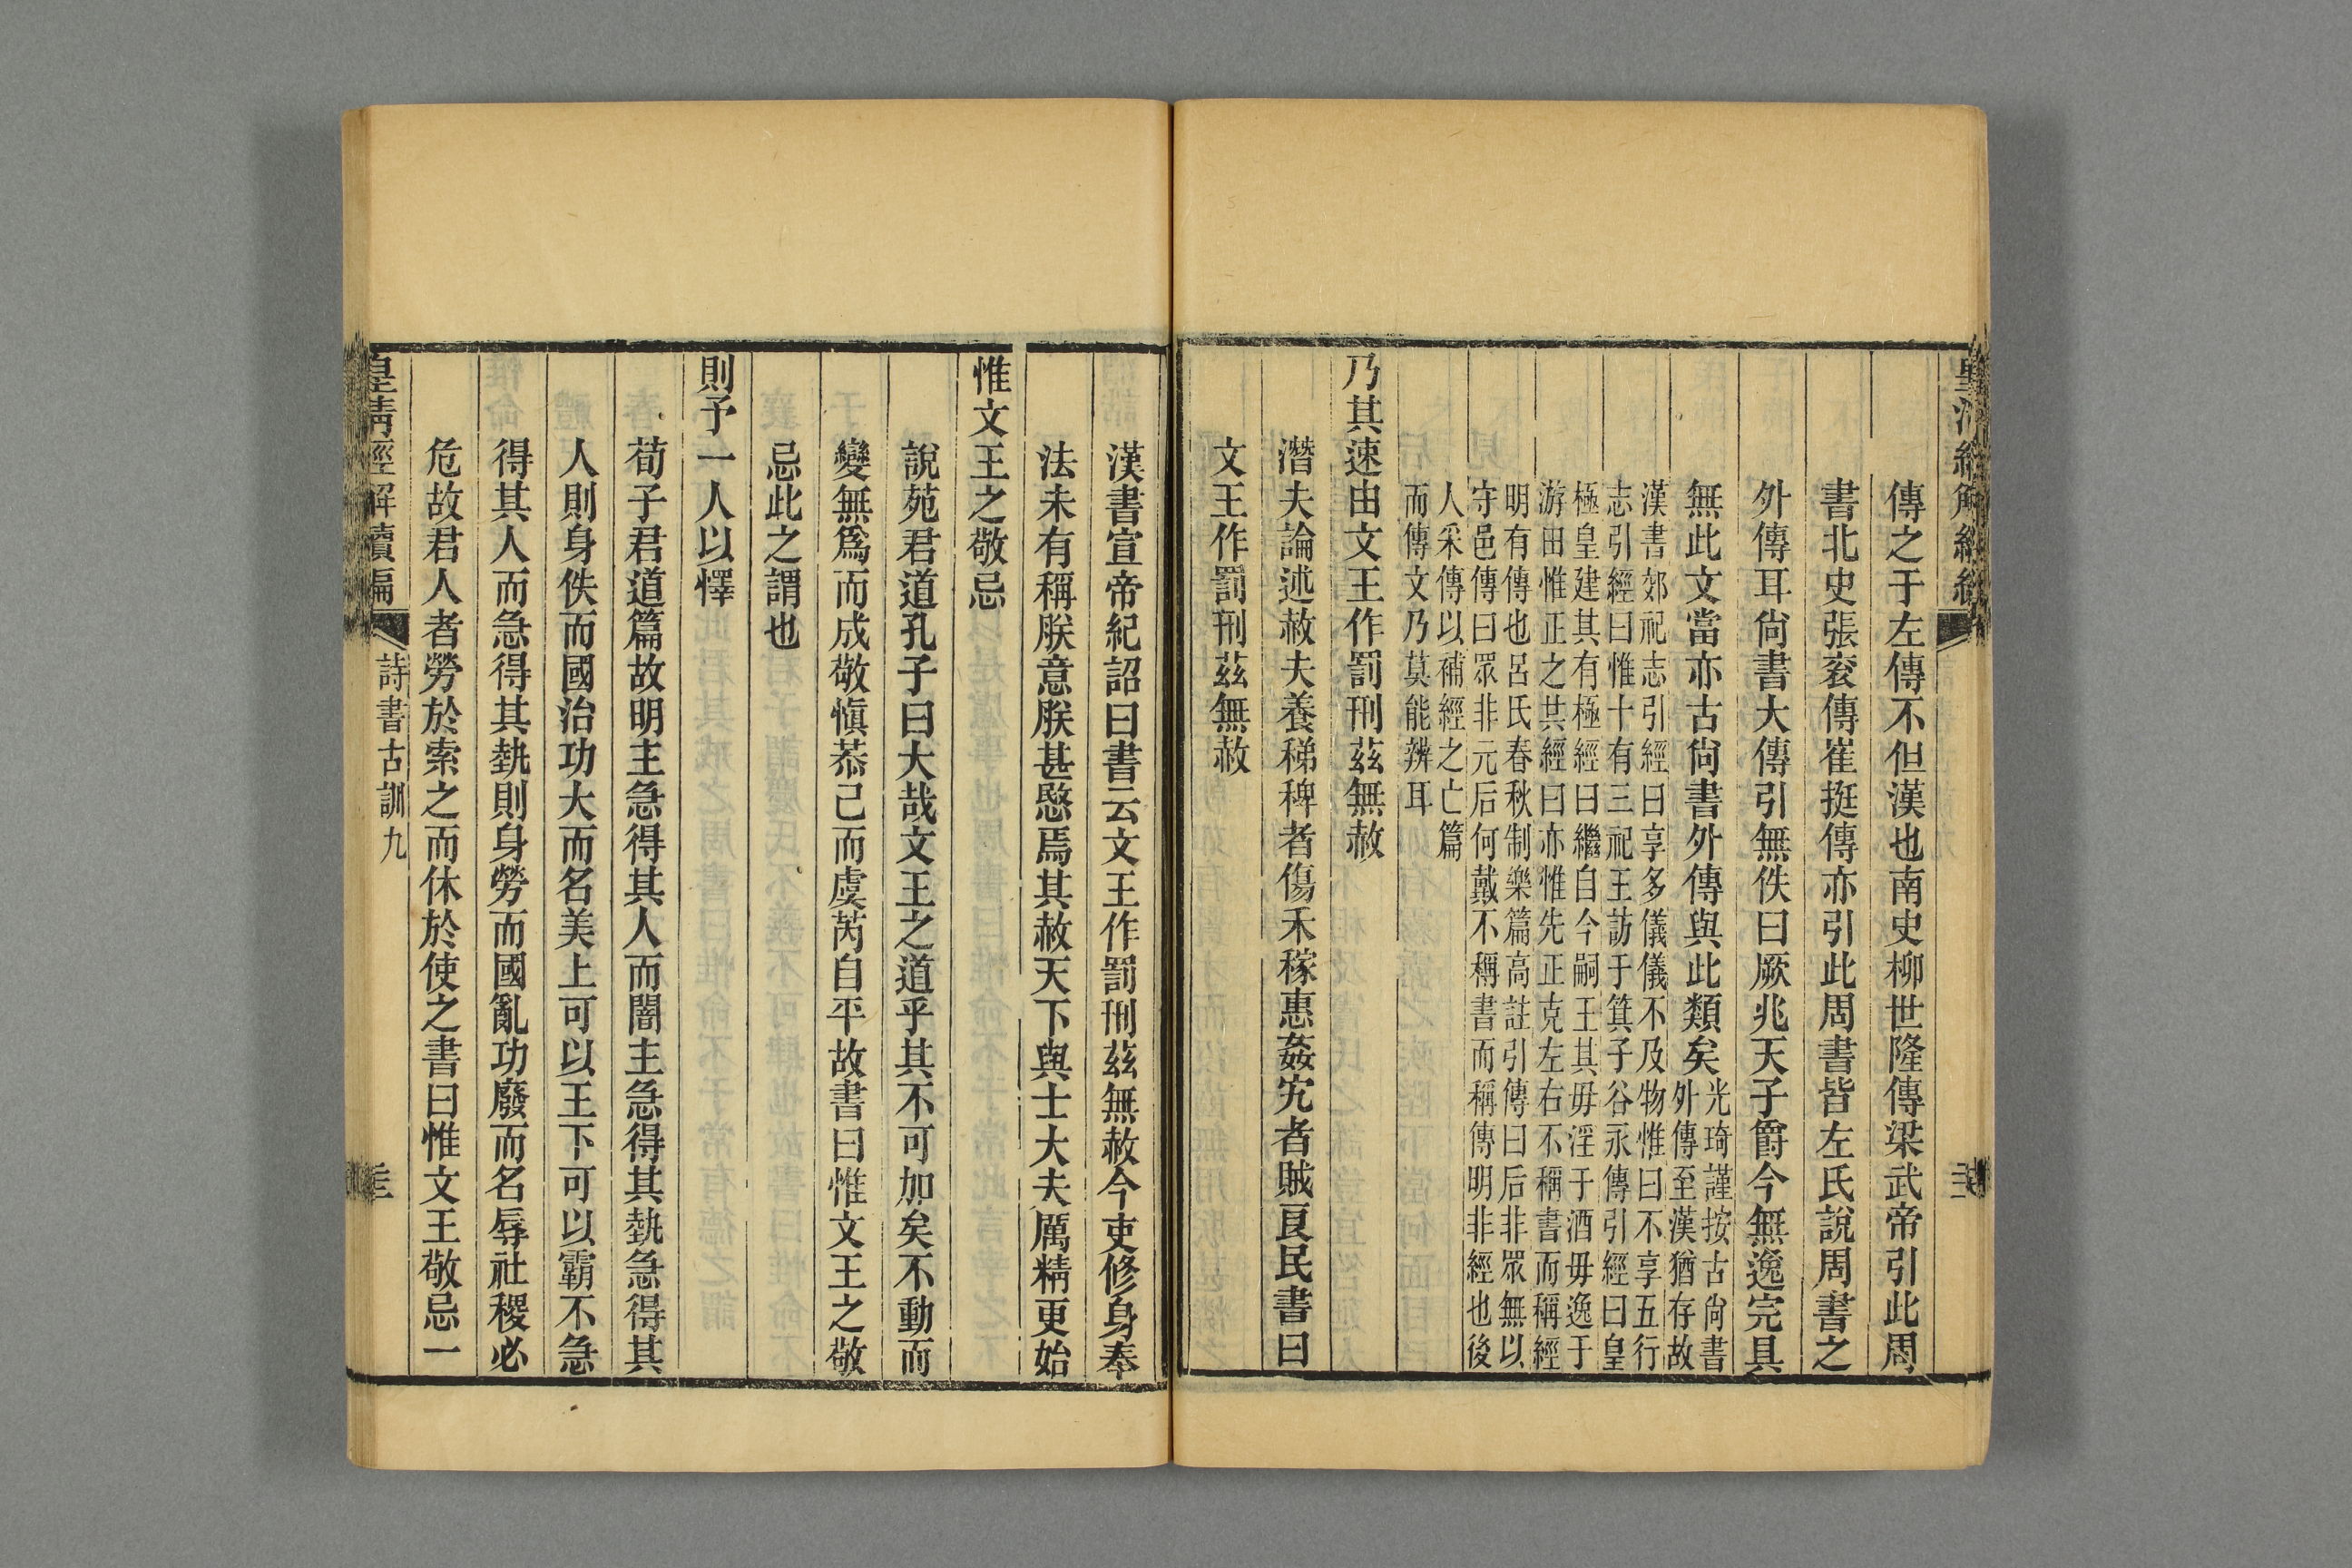 傳之于左傳不但漢也南史柳世隆傳梁武帝引此周
書北史張衮傳崔挺傳亦引此周書皆左氏說周書之
外傳耳尙書大傳引無佚曰厥兆天子爵今無逸完具
無此文當亦古尙書外傳與此類矣光琦謹按古尙書
外傳至漢猶存故
漢書郊祀志引經曰享多儀儀不及物惟曰不享五行
志引經曰惟十有三祀王訪于箕子谷永傳引經曰皇
極皇建其有極經曰繼自今嗣王其毋淫于酒毋逸于
游田惟正之共經曰亦惟先正克左右不稱書而稱經
明有傳也呂氏春秋制樂篇高註引傳曰后非眾無以
守邑傳曰眾非元后何戴不稱書而稱傳明非經也後
人采傳以補經之亡篇
而傳文乃莫能辨耳
乃其速由文王作罰刑茲無赦
潛夫論述赦夫養稊稗者傷禾稼惠姦宄者賊良民書曰
文王作罰刑茲無赦
漢書宣帝紀詔曰書云文王作罰刑茲無赦今吏修身奉
法未有稱朕意朕甚愍焉其赦天下與士大夫厲精更始
惟文王之敬忌
說苑君道孔子曰大哉文王之道乎其不可加矣不動而
變無爲而成敬愼恭己而虞芮自平故書曰惟文王之敬
忌此之謂也
則予一人以懌
荀子君道篇故明主急得其人而闇主急得其埶急得其
人則身佚而國治功大而名美上可以王下可以霸不急
得其人而急得其埶則身勞而國亂功廢而名辱社稷必
危故君人者勞於索之而休於使之書曰惟文王敬忌一
皇淸經解續編
詩書古訓九